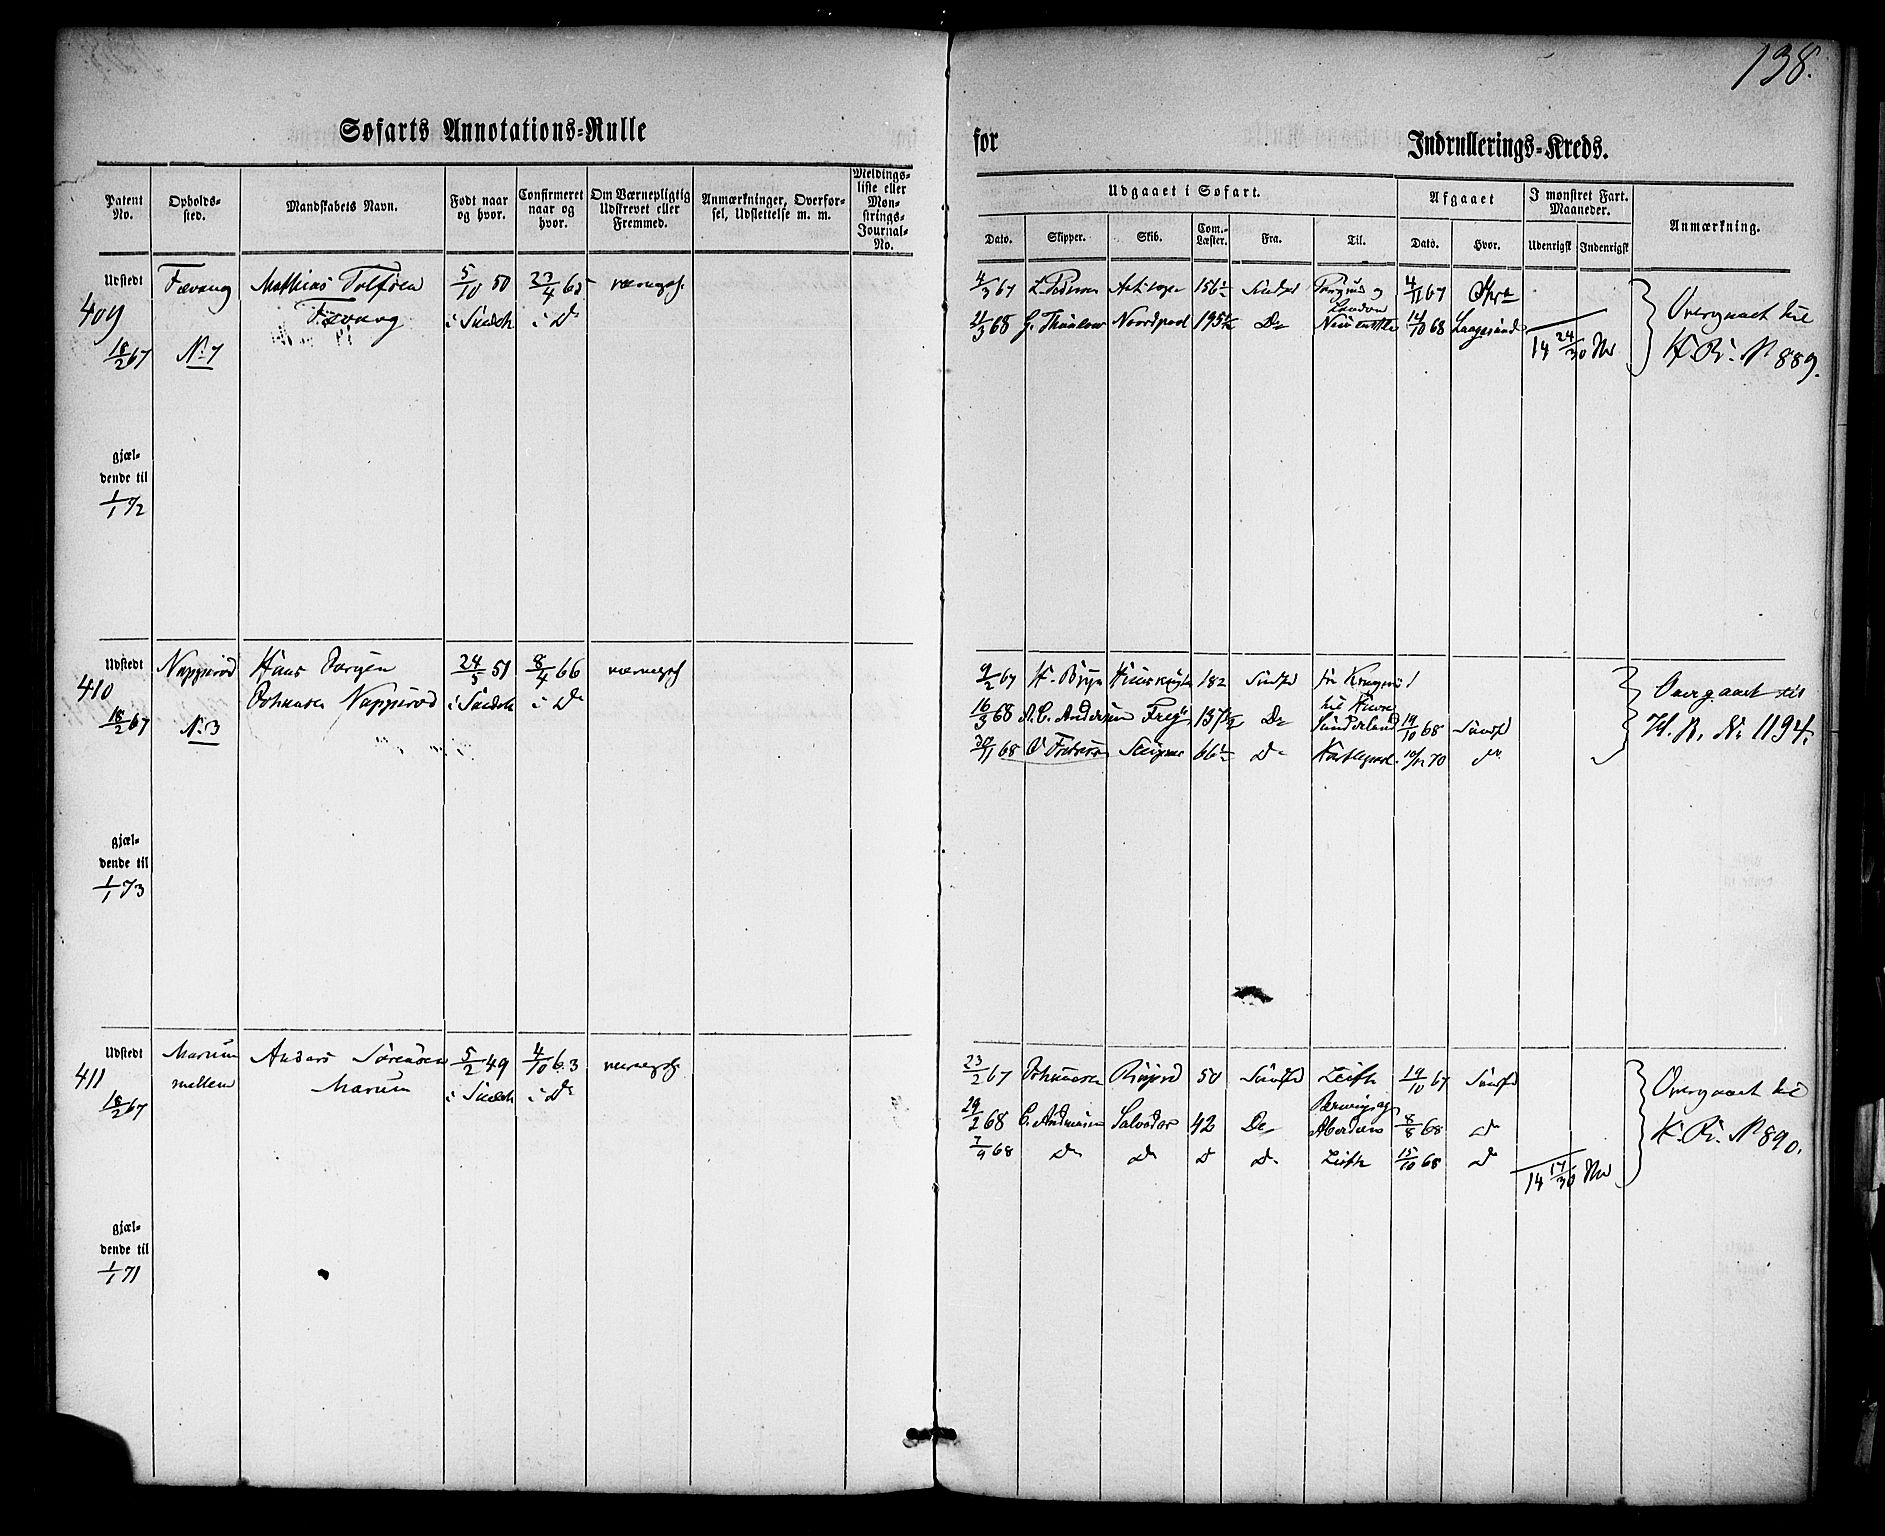 138.
Søfarts Annotations-Rulle for Indrullerings-Kreds.
Patent No.
Opholds-sted.
Mandskabets Navn.
Født naar og hvor.
Confirmeret naar og hvor.
Om Værnepligtig Udskrevet eller Fremmed.
Anmærkninger, Overførsel, Udslettelse m. m.
Meldings-liste eller Mønstrings-Journal-No.
Udgaaet i Søfart.
Dato. Skipper. Skib. Com.-Læster. Fra. Til.
Afgaaet
Dato. Hvor.
I mønstret Fart. Maaneder.
Udenrigsk Indenrigsk
Anmærkning.
Udstedt Fævang Mathias Tolfsen 5/10 50 23/4 65 værnepl.
409 Fævang i Sandeh i Do
18/2 67 No 7
4/3 67 L. Pedersen 156½ Sandfd og London 4/11 67
21/3 68 G. Thaulow Nordpol 195½ Do Newcastle 14/10 68 Langesund
14 24/30 Mr
Overgaaet til
H. R. No 889.
gjæl-
dende til
1/1 72
Udstedt Napperød Hans Jørgen 24/5 51 8/4 66 værnepl
410 Johansen Napperød i Sandeh i Do
18/2 67 No 3
9/2 67 H. Bryn 182 Sandfd
16/3 68 A. C. Andersen Freya 137½ Do Sunderland 19/10 68 Sandfd
30/11 68 66½ Do Hartlepool 10/12 70 do
Overgaaet til
H. R. No 1194.
gjæl-
dende til
1/1 73
Udstedt Marum Anders Sørensen 5/2 49 4/10 63 værnepl
411 mellem Marum i Sandeh i Do
18/2 67
23/2 67 Johannsen 50 Sandfd Leith 19/10 67 Sandfd
29/2 68 C. Andersen Salvador 42 Do Aberdeen 8/8 68 do
7/9 68 Do Do D Do Leith 15/10 68 do
14 17/30 Mr
Overgaaet til
H. R. No 890.
gjæl-
dende til
1/1 71